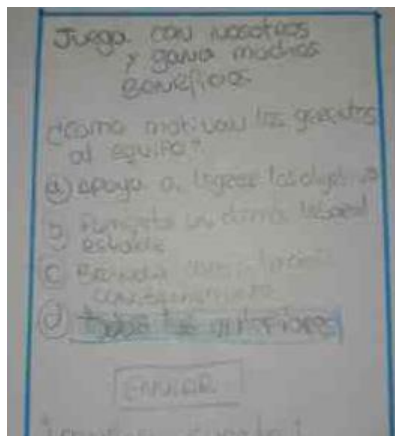 Juega con nosotros
y gana muchos
Beneficios
¿Como motivan los gerentes
al equipo?
a) apoya a lograr los objetivos
b) Fomenta un clima laboral
estable
c) Brinda
d) todas las anteriores
ENVIAR